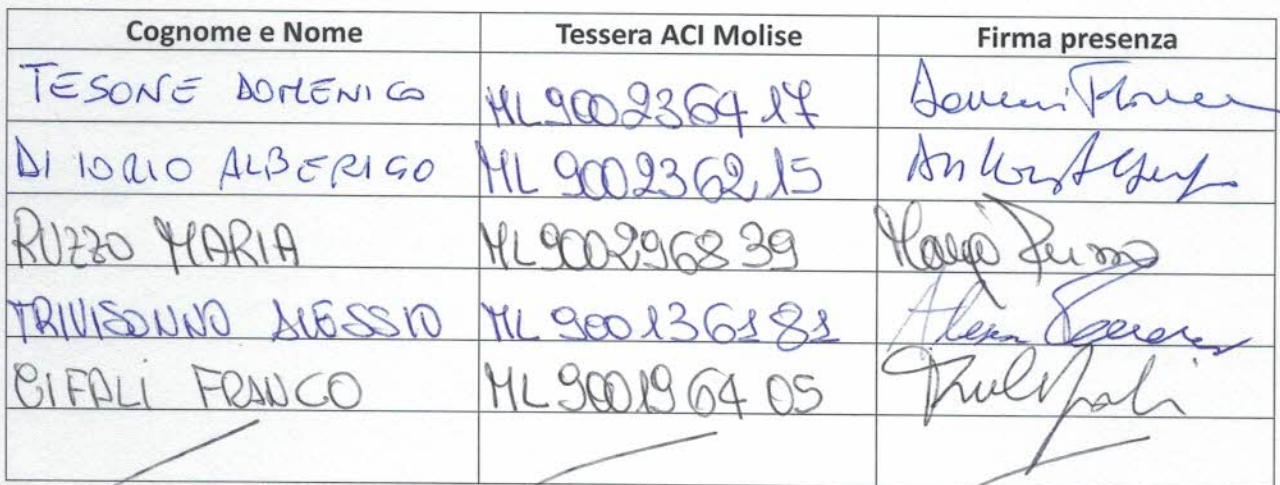 Cognome e Nome Tessera ACI Molise Firma presenza
TESONE DOMENICO ML 9002364 17
DI IORIO ALBERIGO ML 9002362 15
RUZZO MARIA ML 9002968 39
TRIVISONNO ALESSIO ML 9001361 81
CIFALI FRANCO ML 9001964 05